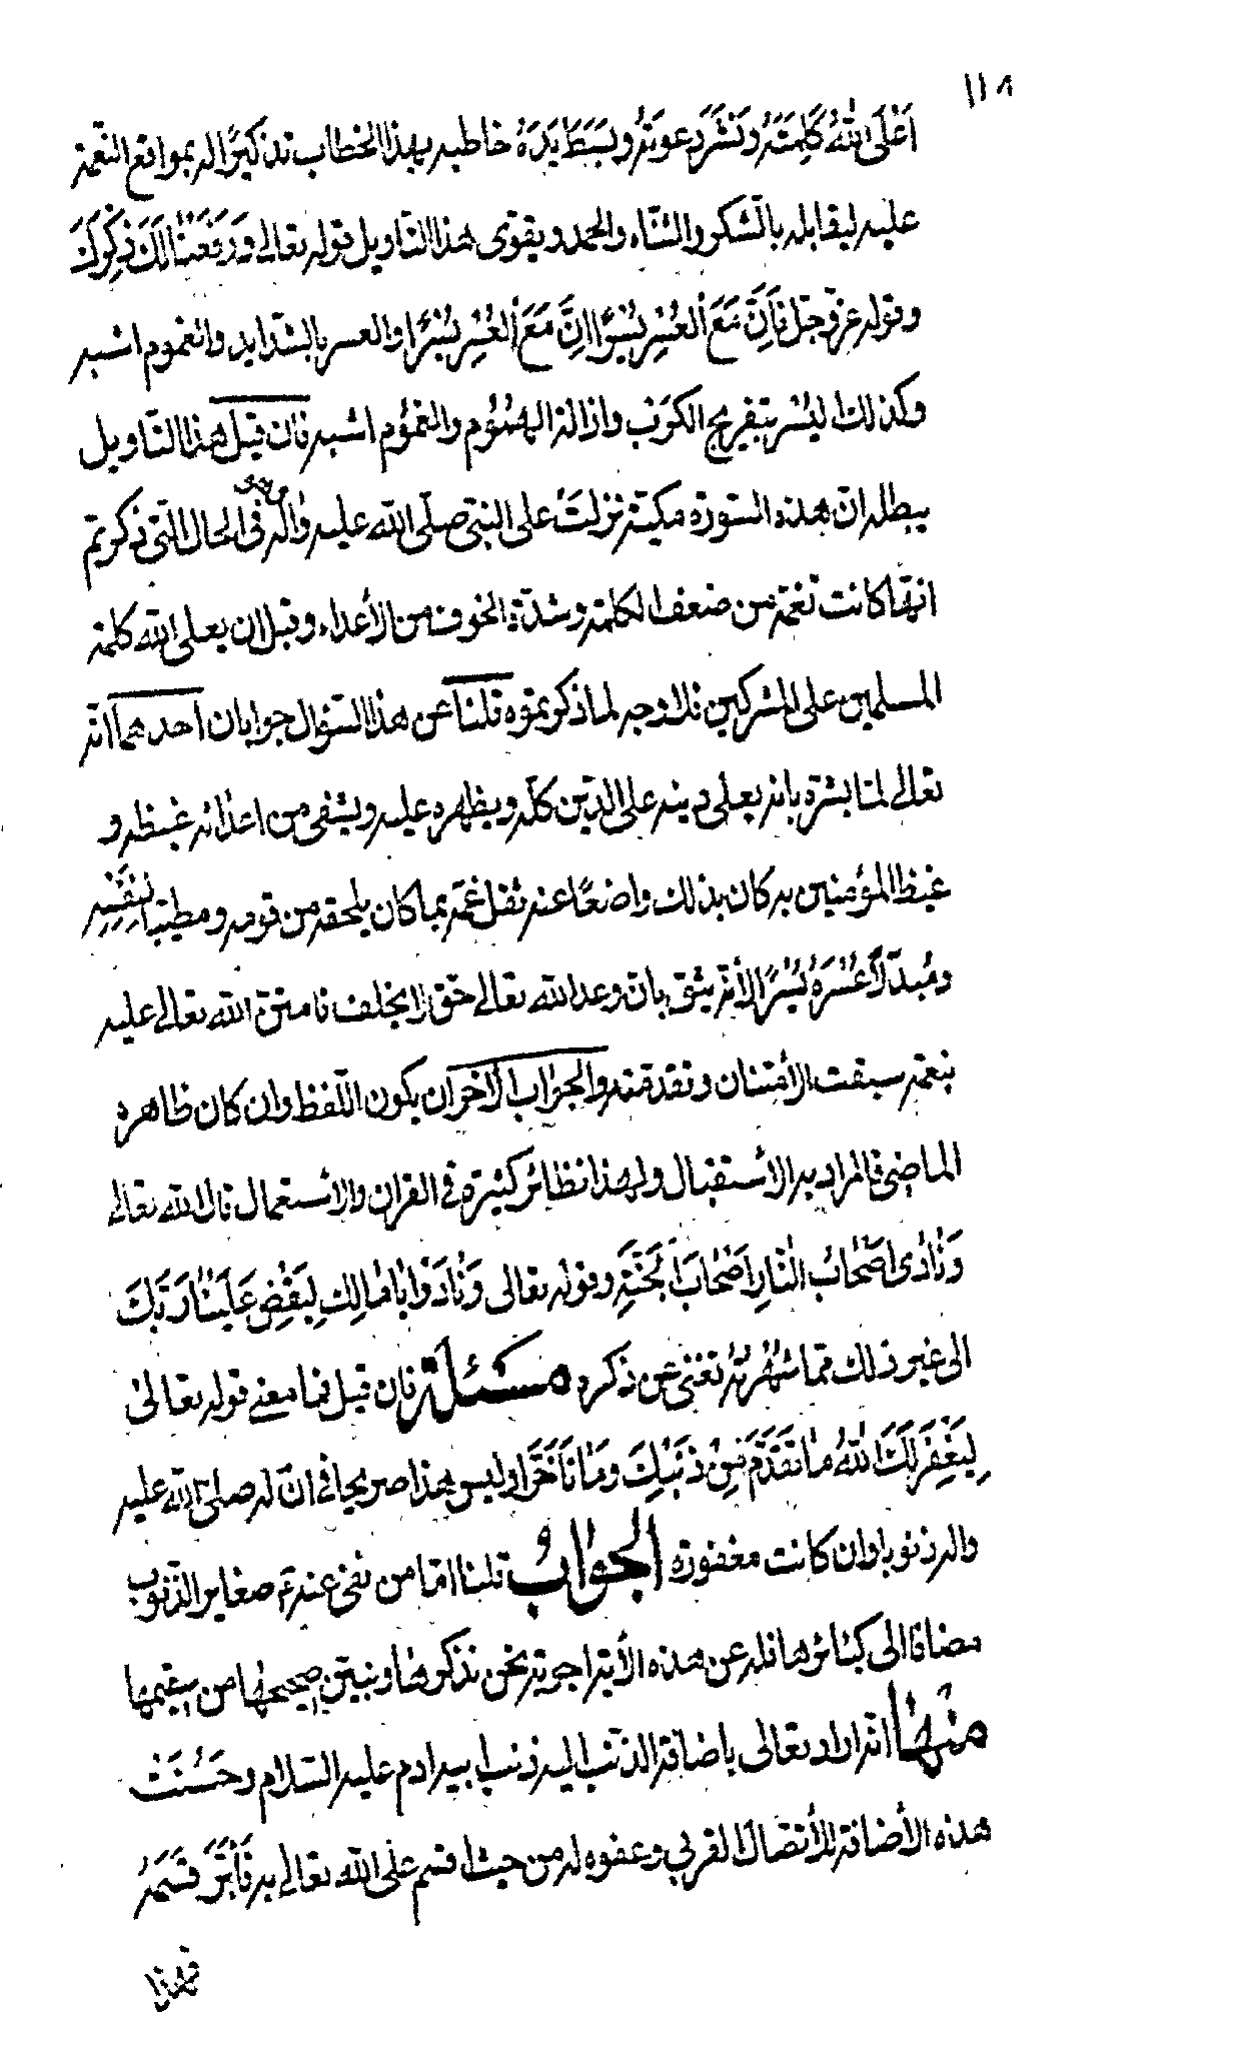 ١١٨
اَعْلَى اللهُ كَلِمَتَهُ وَنَشَرَ دعوَتهُ وبَسَطَ يَدَهُ خاطبه بهذا الخطاب تذكيرًا له بمواقع النّعمة
عليه ليقابله بالشّكر والثّناء والحمد ويقوّى هذا التاويل قوله تعالى وَرَفَعْنٰا لَكَ ذِكْرَكَ
وقوله عزّ وجلّ فَاِنَّ مَعَ العُسْرِ يُسْرًا اِنَّ مَعَ العُسْرِ يُسْرًا والعسر بالشّدايد والغموم اشبه
وكذلك اليُسْر بتفريج الكرَب وازالة الهمُوم والغمُوم اشبه فان قيل هذا التاويل
يبطله ان هذه السّورة مكيّة نزلتْ على النبى صلّى الله عليه واٰله فى الحال الّتى ذكرتم
انّها كانت تغمّه من ضعف الكلمة وشدّة الخوف من الأعداء وقبل ان يعلى الله كلمة
المسلمين على المشركين فلا وجه لما ذكرتموه قلنا عن هذا السّؤال جوابان احدهما انّه
تعالى لمّا بشّره بانه يعلى دينه على الدّين كلّه ويظهره عليه ويشفى من اعدائه غيظه و
غيظ المؤمنين به كان بذلك واضعًا عنه ثقل غمّه بما كان يلحقه من قومه ومطيّبا لِنَفْسِهِ
ومُبدّلًا عُسْرَهُ يُسْرًا لأنّه يثق بانّ وعد الله تعالى حقّ لا يخلف فامتنّ الله تعالى عليه
بنعمة سبقت الأمتنان وتقدمته والجواب الاخر ان يكون اللّفظ وان كان ظاهره
الماضى فالمراد به الأستقبال ولهذا نظائر كثيرة فى القران والأستعمال قال الله تعالى
وَنٰادٰى اَصْحٰابُ النّارِ اَصْحٰابَ الجَنَّةِ وقوله تعالى وَنٰادَوْا يٰا مٰالِكُ لِيَقْضِ عَلَيْنٰا رَبُّكَ
الى غير ذلك ممّا شهْرتهُ تغنى عن ذكره مسئلة فان قيل فما معنى قوله تعالى
لِيَغْفِرَ لَكَ اللهُ مٰا تَقَدَّمَ مِنْ ذَنْبِكَ وَمٰا تَأَخَّرَ اوليس هذا صريحا فى انّ له صلى الله عليه
واله ذنوبا وان كانت مغفورة الجوابُ قلنا امّا من نفى عنه ع صغاير الذّنوب
مضافا الى كبائرها فله عن هذه الأية اجوبة نحن نذكرها ونبيّن صحيحها من سقيمها
منهٰا انّه اراد تعالى باضافة الذّنب اليه ذنب ابيه ادم عليه السّلام وحَسُنَتْ
هذه الأضافة للأتّصال القربى وعفوه له من حيث اقسم على الله تعالى به فَأبَرَّ قَسَمَهُ
فهذا